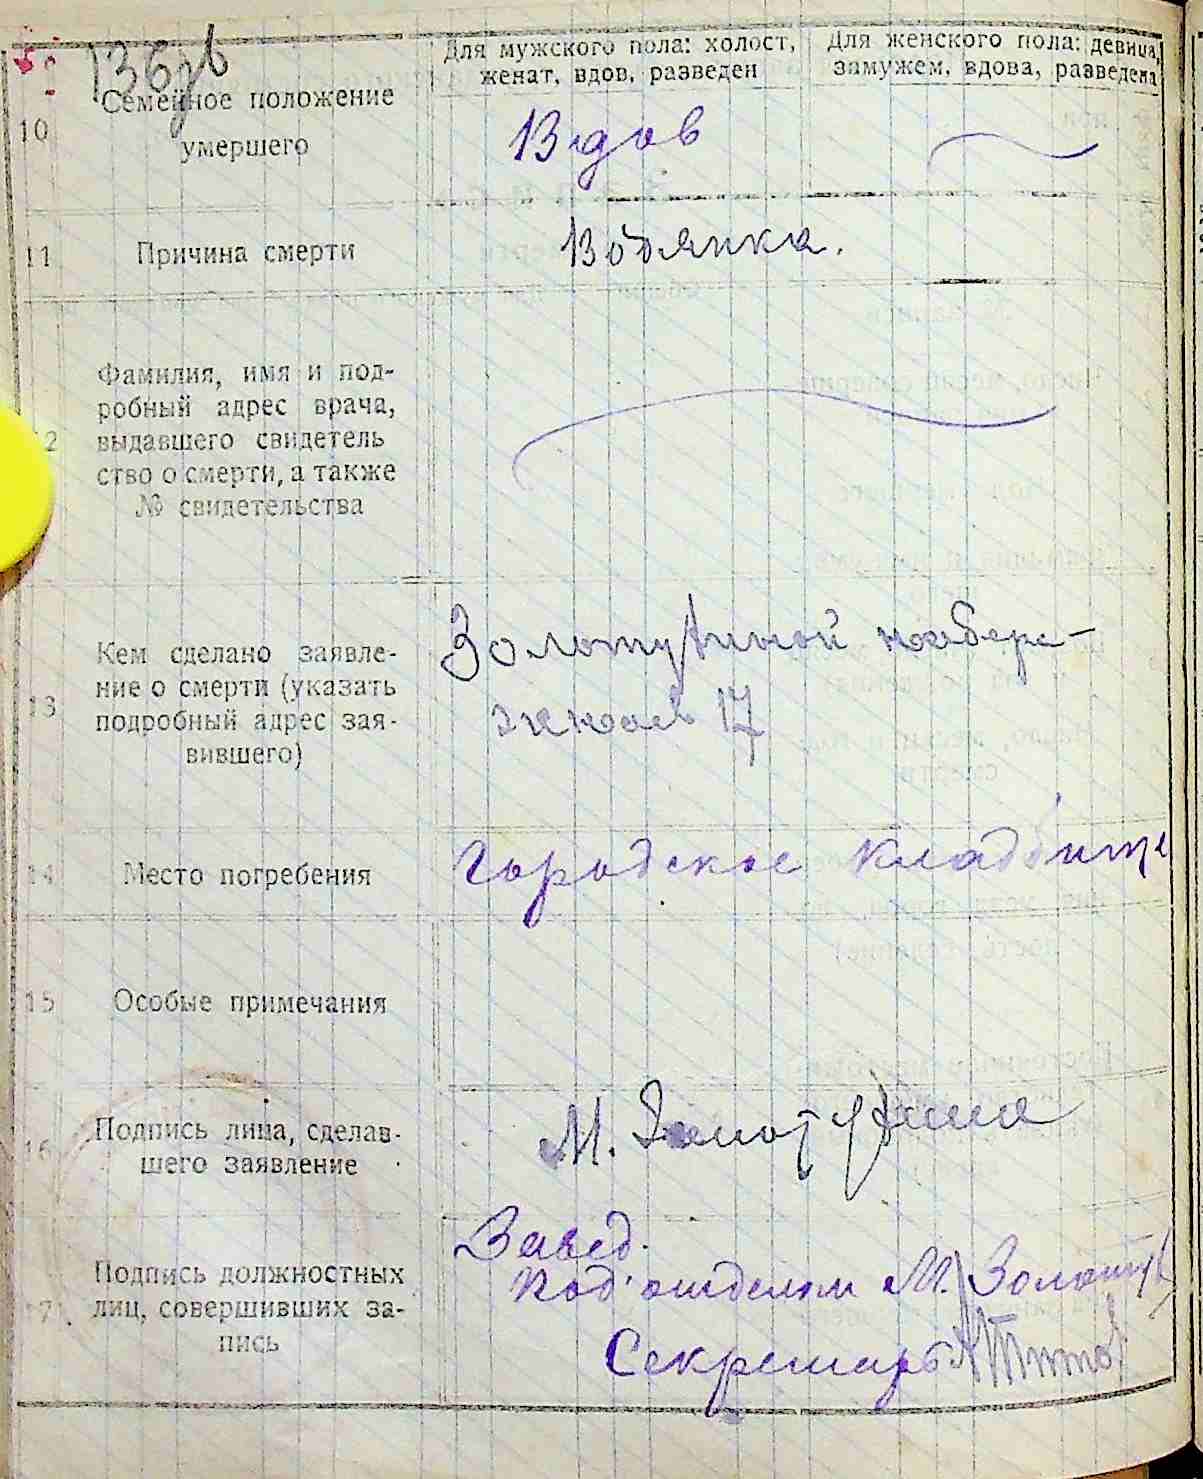 136
Для мужского пола: холост,
женат, вдов, разведен
Для женского пола: девица,
замужем, вдова, разведена
10
Семейное положение
умершего
Вдов
11
Причина смерти
Водянка.
12
Фамилия, имя и под-
робный адрес врача,
выдавшего свидетель
ство о смерти, а также
№ свидетельства
13
Кем сделано заявле-
ние о смерти (указать
подробный адрес зая-
вившего)
Золотухиной набере-
жная 17
14
Место погребения
Городское кладбище
15
Особые примечания
16
Подпись лица, сделав-
шего заявление
М. Золотухина
17
Подпись должностных
лиц, совершивших за-
пись
Завед.
Под'отделом М. Золотух
Секретарь